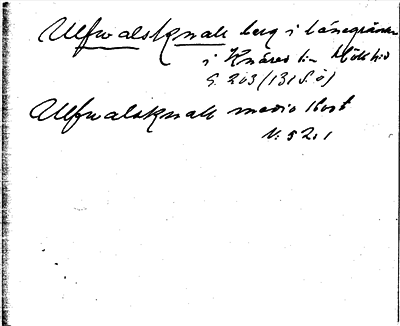 Ulfwalsknall berg i länsgränsen
i Knäred sn Hökhd
S. 203 (131 S.ö)
Ulfwalsknall
N: 52.1